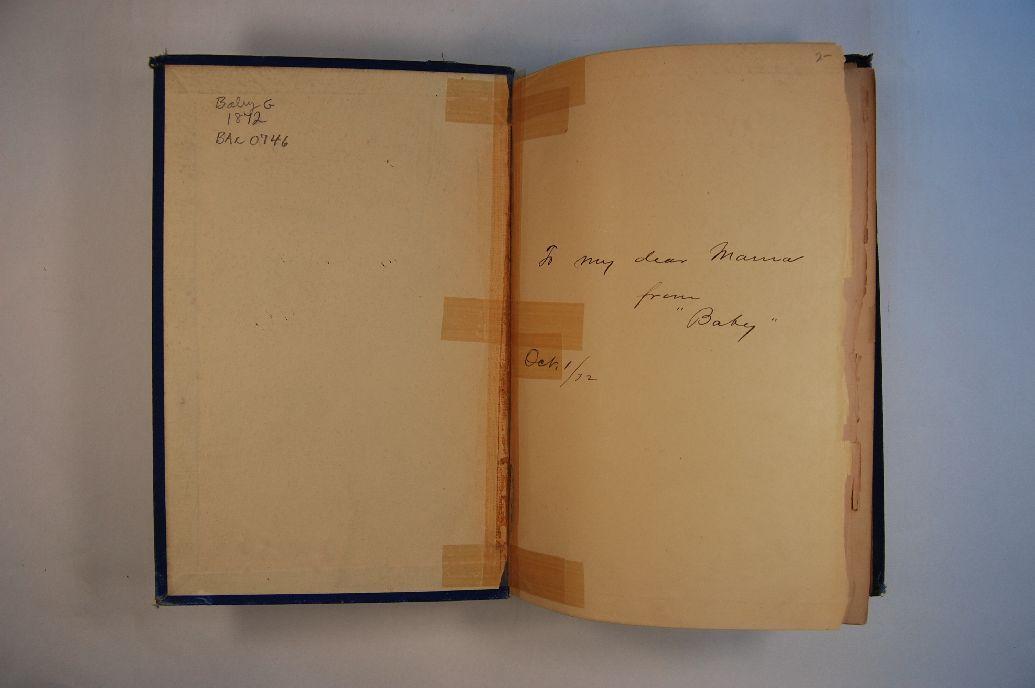 Baby G
1872
BAc 0746
2-
To my dear Mama
from
"Baby"
Oct. 1/72